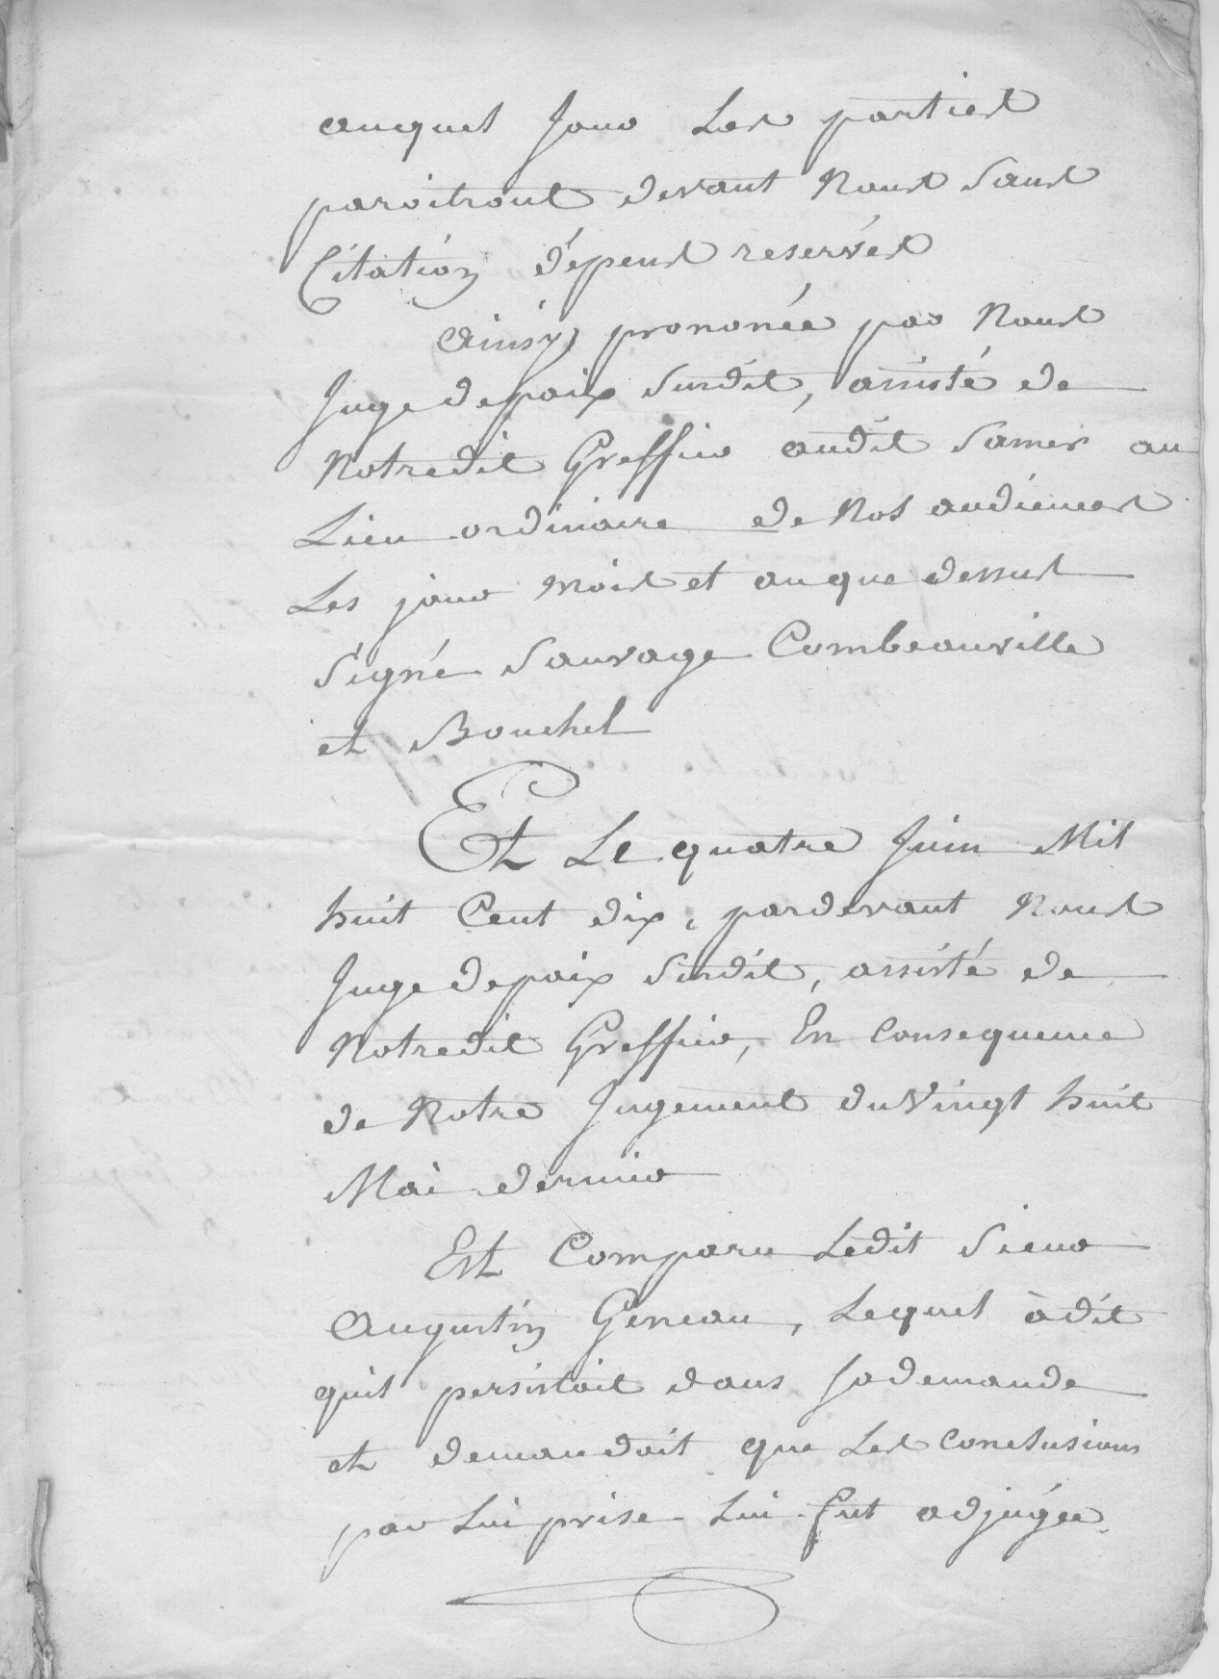 auquel jour Les parties
paroitront devant Nous Sans
Citation dépens reservés
ainsy prononcée par Nous
Juge de paix Susdit, assisté de
Notredit Greffier audit Samer au
Lieu ordinaire de Nos audiences
Les jour mois et an que dessus
Signé Sauvage Combeauville
et Bouchel
Et Le quatre Juin Mil
huit Cent dix, pardevant Nous
Juge de paix Susdit, assisté de
Notredit Greffier, En Consequence
de Notre Jugement du Vingt huit
Mai dernier
Est Comparu Ledit Sieur
Augustin Geneau, Lequel à dit
quil persistoit dans sa demande
et demandoit que Les Conclusions
par Lui prise Lui fut adjugée